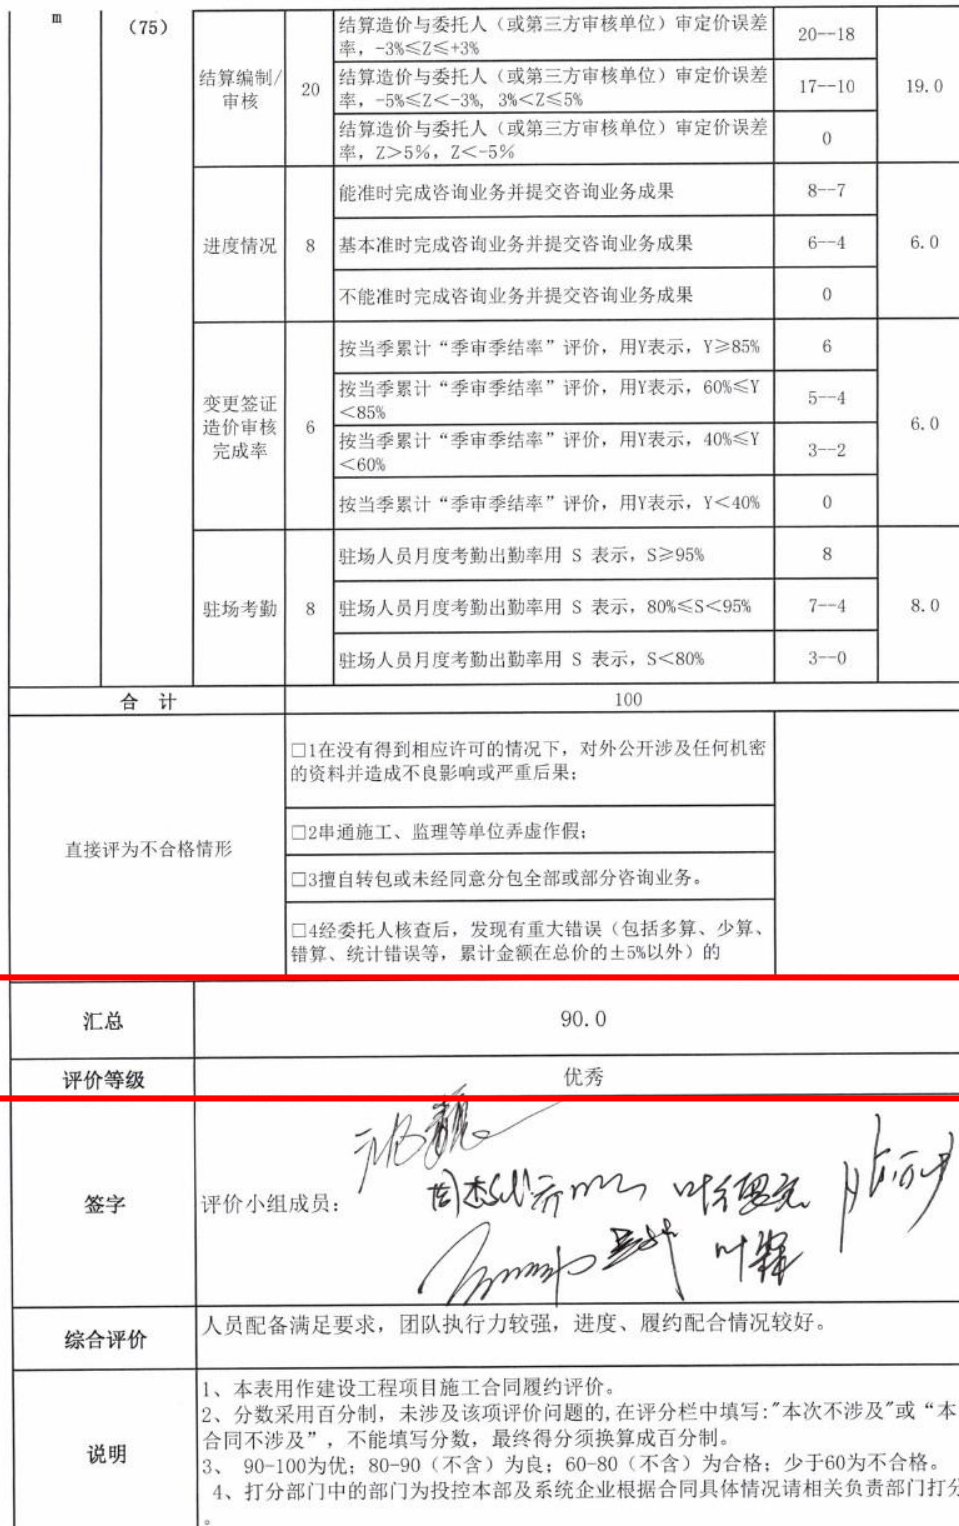 m
（75）
结算编制/
审核
20
结算造价与委托人（或第三方审核单位）审定价误差
率，-3%≤Z≤+3%
20--18
结算造价与委托人（或第三方审核单位）审定价误差
率，-5%≤Z＜-3%, 3%＜Z≤5%
17--10
结算造价与委托人（或第三方审核单位）审定价误差
率，Z＞5%，Z＜-5%
0
19.0
进度情况
8
能准时完成咨询业务并提交咨询业务成果
8--7
基本准时完成咨询业务并提交咨询业务成果
6--4
不能准时完成咨询业务并提交咨询业务成果
0
6.0
变更签证
造价审核
完成率
6
按当季累计“季审季结率”评价，用Y表示，Y≥85%
6
按当季累计“季审季结率”评价，用Y表示，60%≤Y
＜85%
5--4
按当季累计“季审季结率”评价，用Y表示，40%≤Y
＜60%
3--2
按当季累计“季审季结率”评价，用Y表示，Y＜40%
0
6.0
驻场考勤
8
驻场人员月度考勤出勤率用 S 表示，S≥95%
8
驻场人员月度考勤出勤率用 S 表示，80%≤S＜95%
7--4
驻场人员月度考勤出勤率用 S 表示，S＜80%
3--0
8.0
合 计
100
直接评为不合格情形
□1在没有得到相应许可的情况下，对外公开涉及任何机密
的资料并造成不良影响或严重后果；
□2串通施工、监理等单位弄虚作假；
□3擅自转包或未经同意分包全部或部分咨询业务。
□4经委托人核查后，发现有重大错误（包括多算、少算、
错算、统计错误等，累计金额在总价的±5%以外）的
汇总
90.0
评价等级
优秀
签字
评价小组成员：
综合评价
人员配备满足要求，团队执行力较强，进度、履约配合情况较好。
说明
1、本表用作建设工程项目施工合同履约评价。
2、分数采用百分制，未涉及该项评价问题的,在评分栏中填写:"本次不涉及"或“本
合同不涉及”，不能填写分数，最终得分须换算成百分制。
3、 90-100为优；80-90（不含）为良；60-80（不含）为合格；少于60为不合格。
4、打分部门中的部门为投控本部及系统企业根据合同具体情况请相关负责部门打分
。